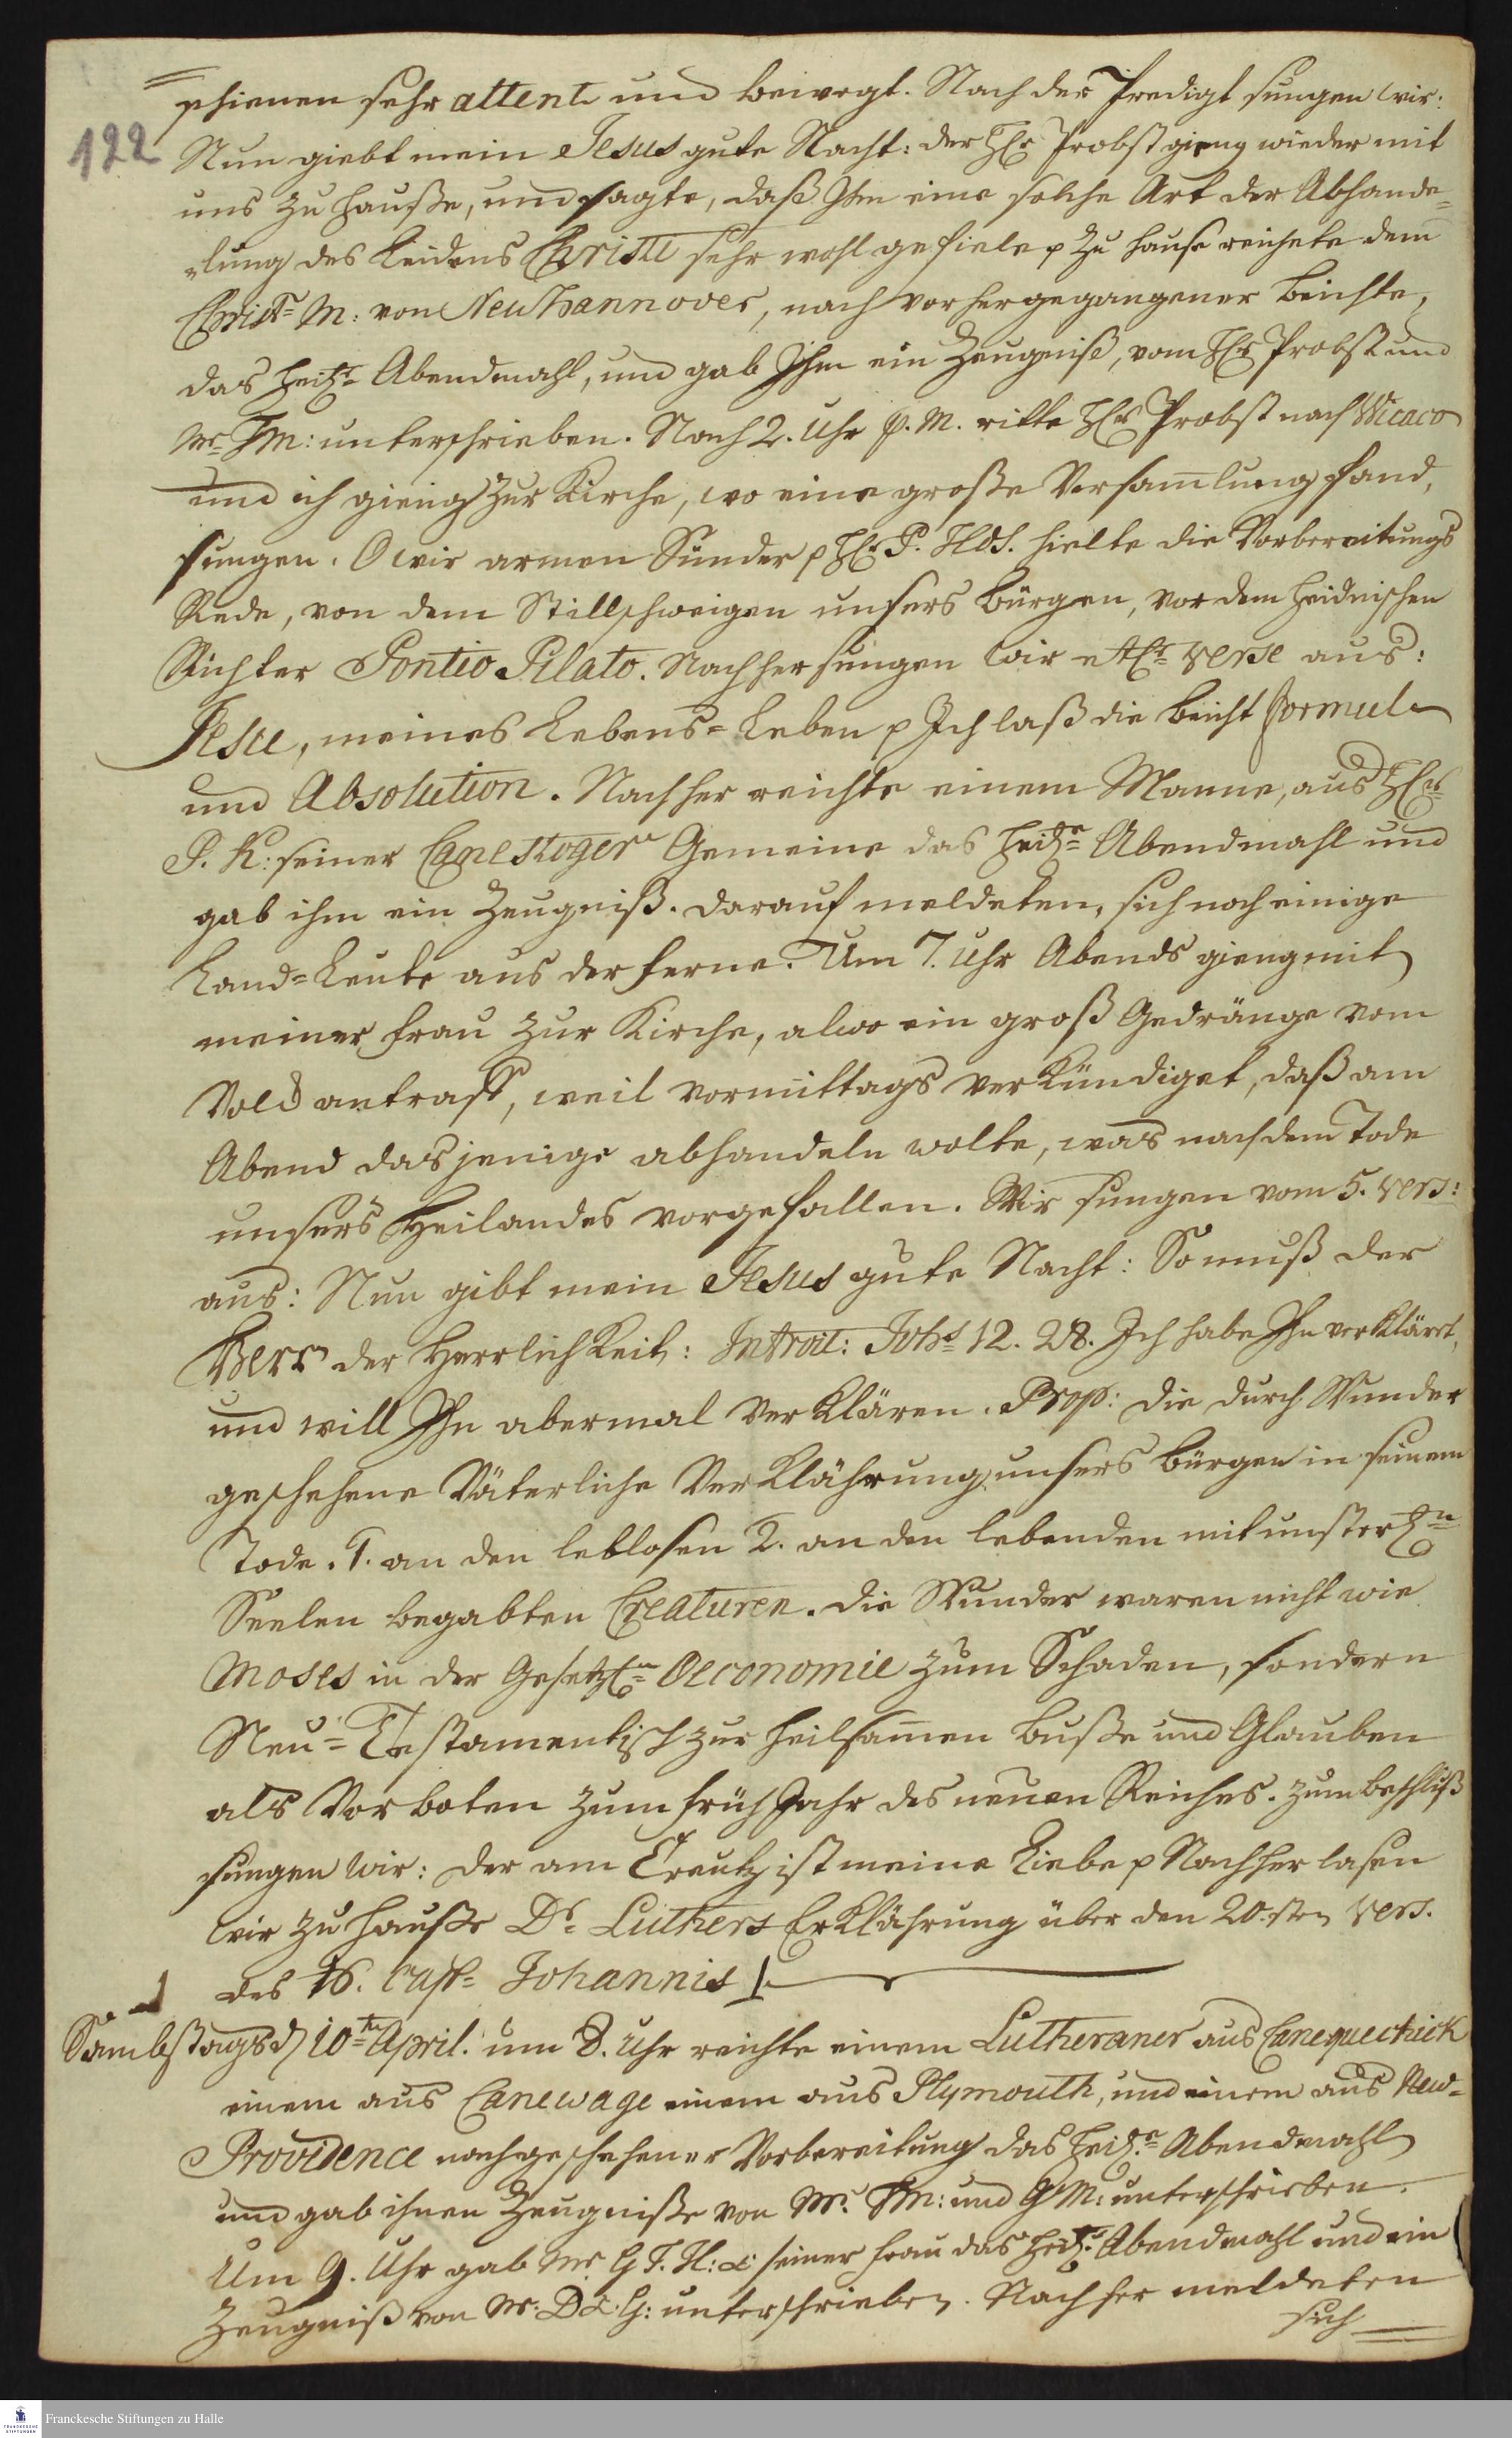 schienen sehr attent und bewegt. Nach der Predigt sungen wir:
122 Nun giebt mein Jesus gute Nacht: der HEr Probst gieng wieder mit
uns zu Hausse, und sagte, daß Ihm eine solche Art der Abhande=
=lung des Leidens Christi sehr wohl gefiele p Zu Hause reichete dem
Christn M: von Neu Hannover, nach vorhergegangener Beichte,
das Heilge Abendmahl, und gab Ihm ein Zeugniß, vom HEr Probst und
Mr HM: unterschrieben. Nach 2. Uhr p. M. ritte HEr Probst nach Wicaco
und ich gieng zur Kirche, wo eine große Versam̅lung fand,
sungen. O wir armen Sünder p HEr P. Hds. hielte die Vorbereitungs
Rede, von dem Stillschweigen unsers Bürgen, vor dem Heidnischen
Richter Pontio Pilato. Nachher sungen wir etl: verse aus:
Jesu, meines Lebens= Leben p Ich laß die Beicht formul
und Absolution. Nachher reichte einem Manne, aus HErr
P. K: seiner Canestoger Gemeine das Heilge Abendmahl und
gab ihm ein Zeugniß. Darauf meldeten, sich noch einige
Land=Leute aus der ferne. Um 7. Uhr Abends gieng mit
meiner Frau zur Kirche, alwo ein groß Gedränge vom
Volck antraff, weil vormittags verkündiget, daß am
Abend dasjenige abhandeln wolte, was nach dem Tode
unsers Heilandes vorgefallen. Wir sungen vom 5. vers:
aus: Nun gibt mein Jesus gute Nacht: So muß der
Herr der Herrlichkeit: Introit: Johs 12. 28. Ich habe Ihn verklärt,
und will Ihn abermal verklären. Prop: die durch Wunder
geschehene Väterliche Verklährung unsers Bürgen in seinem
Tode. 1. an den leblosen 2. an den lebenden mit unsterbn
Seelen begabten Creaturen. Die Wunder waren nicht wie
Moses in der Gesetzln Oeconomie zum Schaden, sondern
Neu=Testamentisch zur heilsam̅en Busse und Glauben
als Vorboten zum früh Jahr des neuen Reiches. Zum Beschluß
sungen wir: der am Creutz ist meine Liebe p Nachher lasen
wir zu Hausse Dr Luthers Erklährung über den 20.sten vers.
des 16. Cap: Johannis
Sambstags d 10tn April. um 8. Uhr reichte einem Lutheraner aus Canequechick
einem aus Canewage einem aus Plymouth, und einem aus New=
Providence nach geschehener Vorbereitung das Heilge Abendmahl
und gab ihnen Zeugnisse von Mr. HM: und GM: unterschrieben.
Um 9. Uhr gab Mr. G F. H: & seiner Frau das Heilge Abendmahl und ein
Zeugniß von Mr. D & G: unterschrieben. Nachher meldeten
sich
Franckesche Stiftungen zu Halle